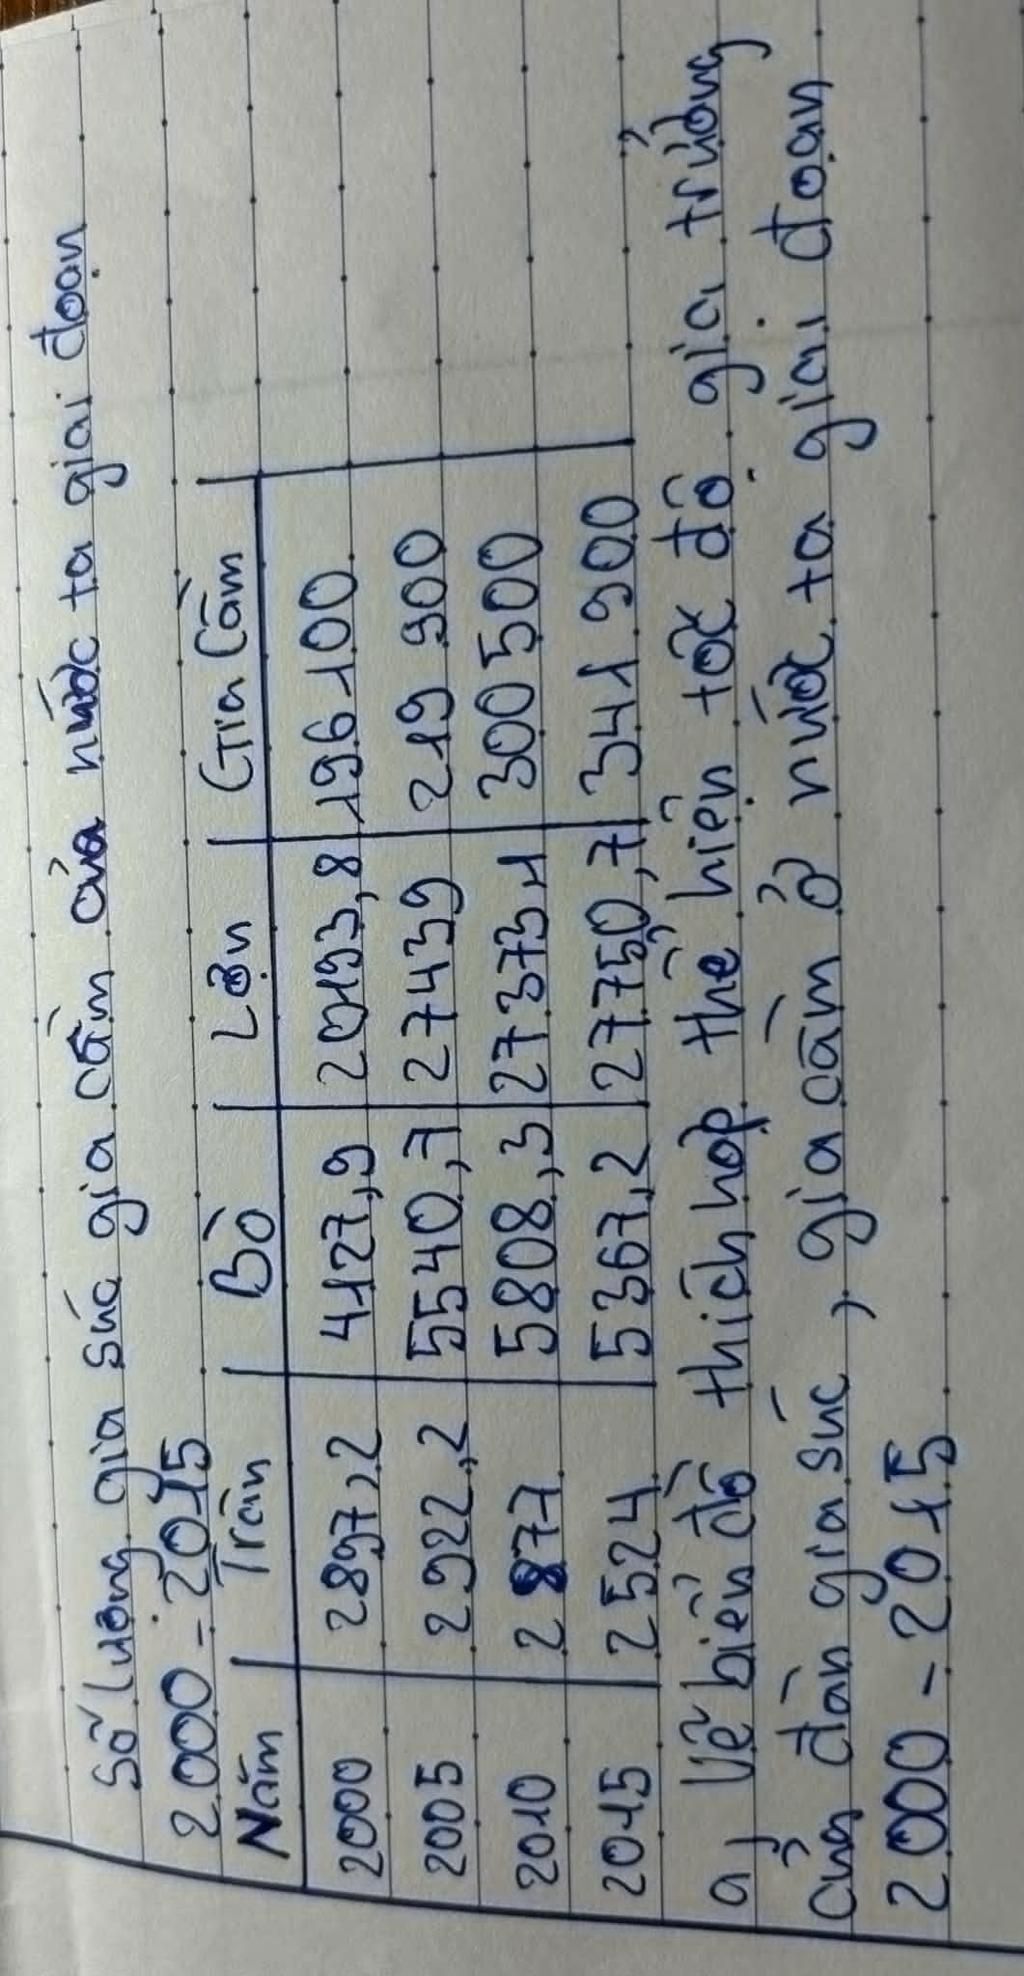 Số lượng gia súc gia cầm của nước ta giai đoạn
2000 - 2015
Năm Trâu Bò Lợn Gia Cầm
2000 2897,2 4127,9 20193,8 196 100
2005 2922,2 5540,7 27439 219 900
2010 2877 5808,3 27373,1 300 500
2015 2524 5367,2 27750,7 341 900
a, Vẽ biểu đồ thích hợp thể hiện tốc độ gia trưởng
của đàn gia súc, gia cầm ở nước ta giai đoạn
2000 - 2015